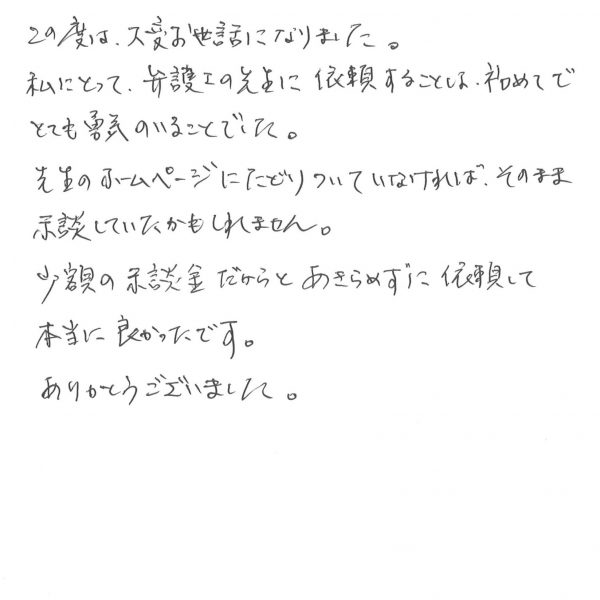 この度は、大変お世話になりました。
私にとって、弁護士の先生に依頼することは、初めてで
とても勇気のいることでした。
先生のホームページにたどりついていなければ、そのまま
示談していたかもしれません。
少額の示談金だからとあきらめずに依頼して
本当に良かったです。
ありがとうございました。